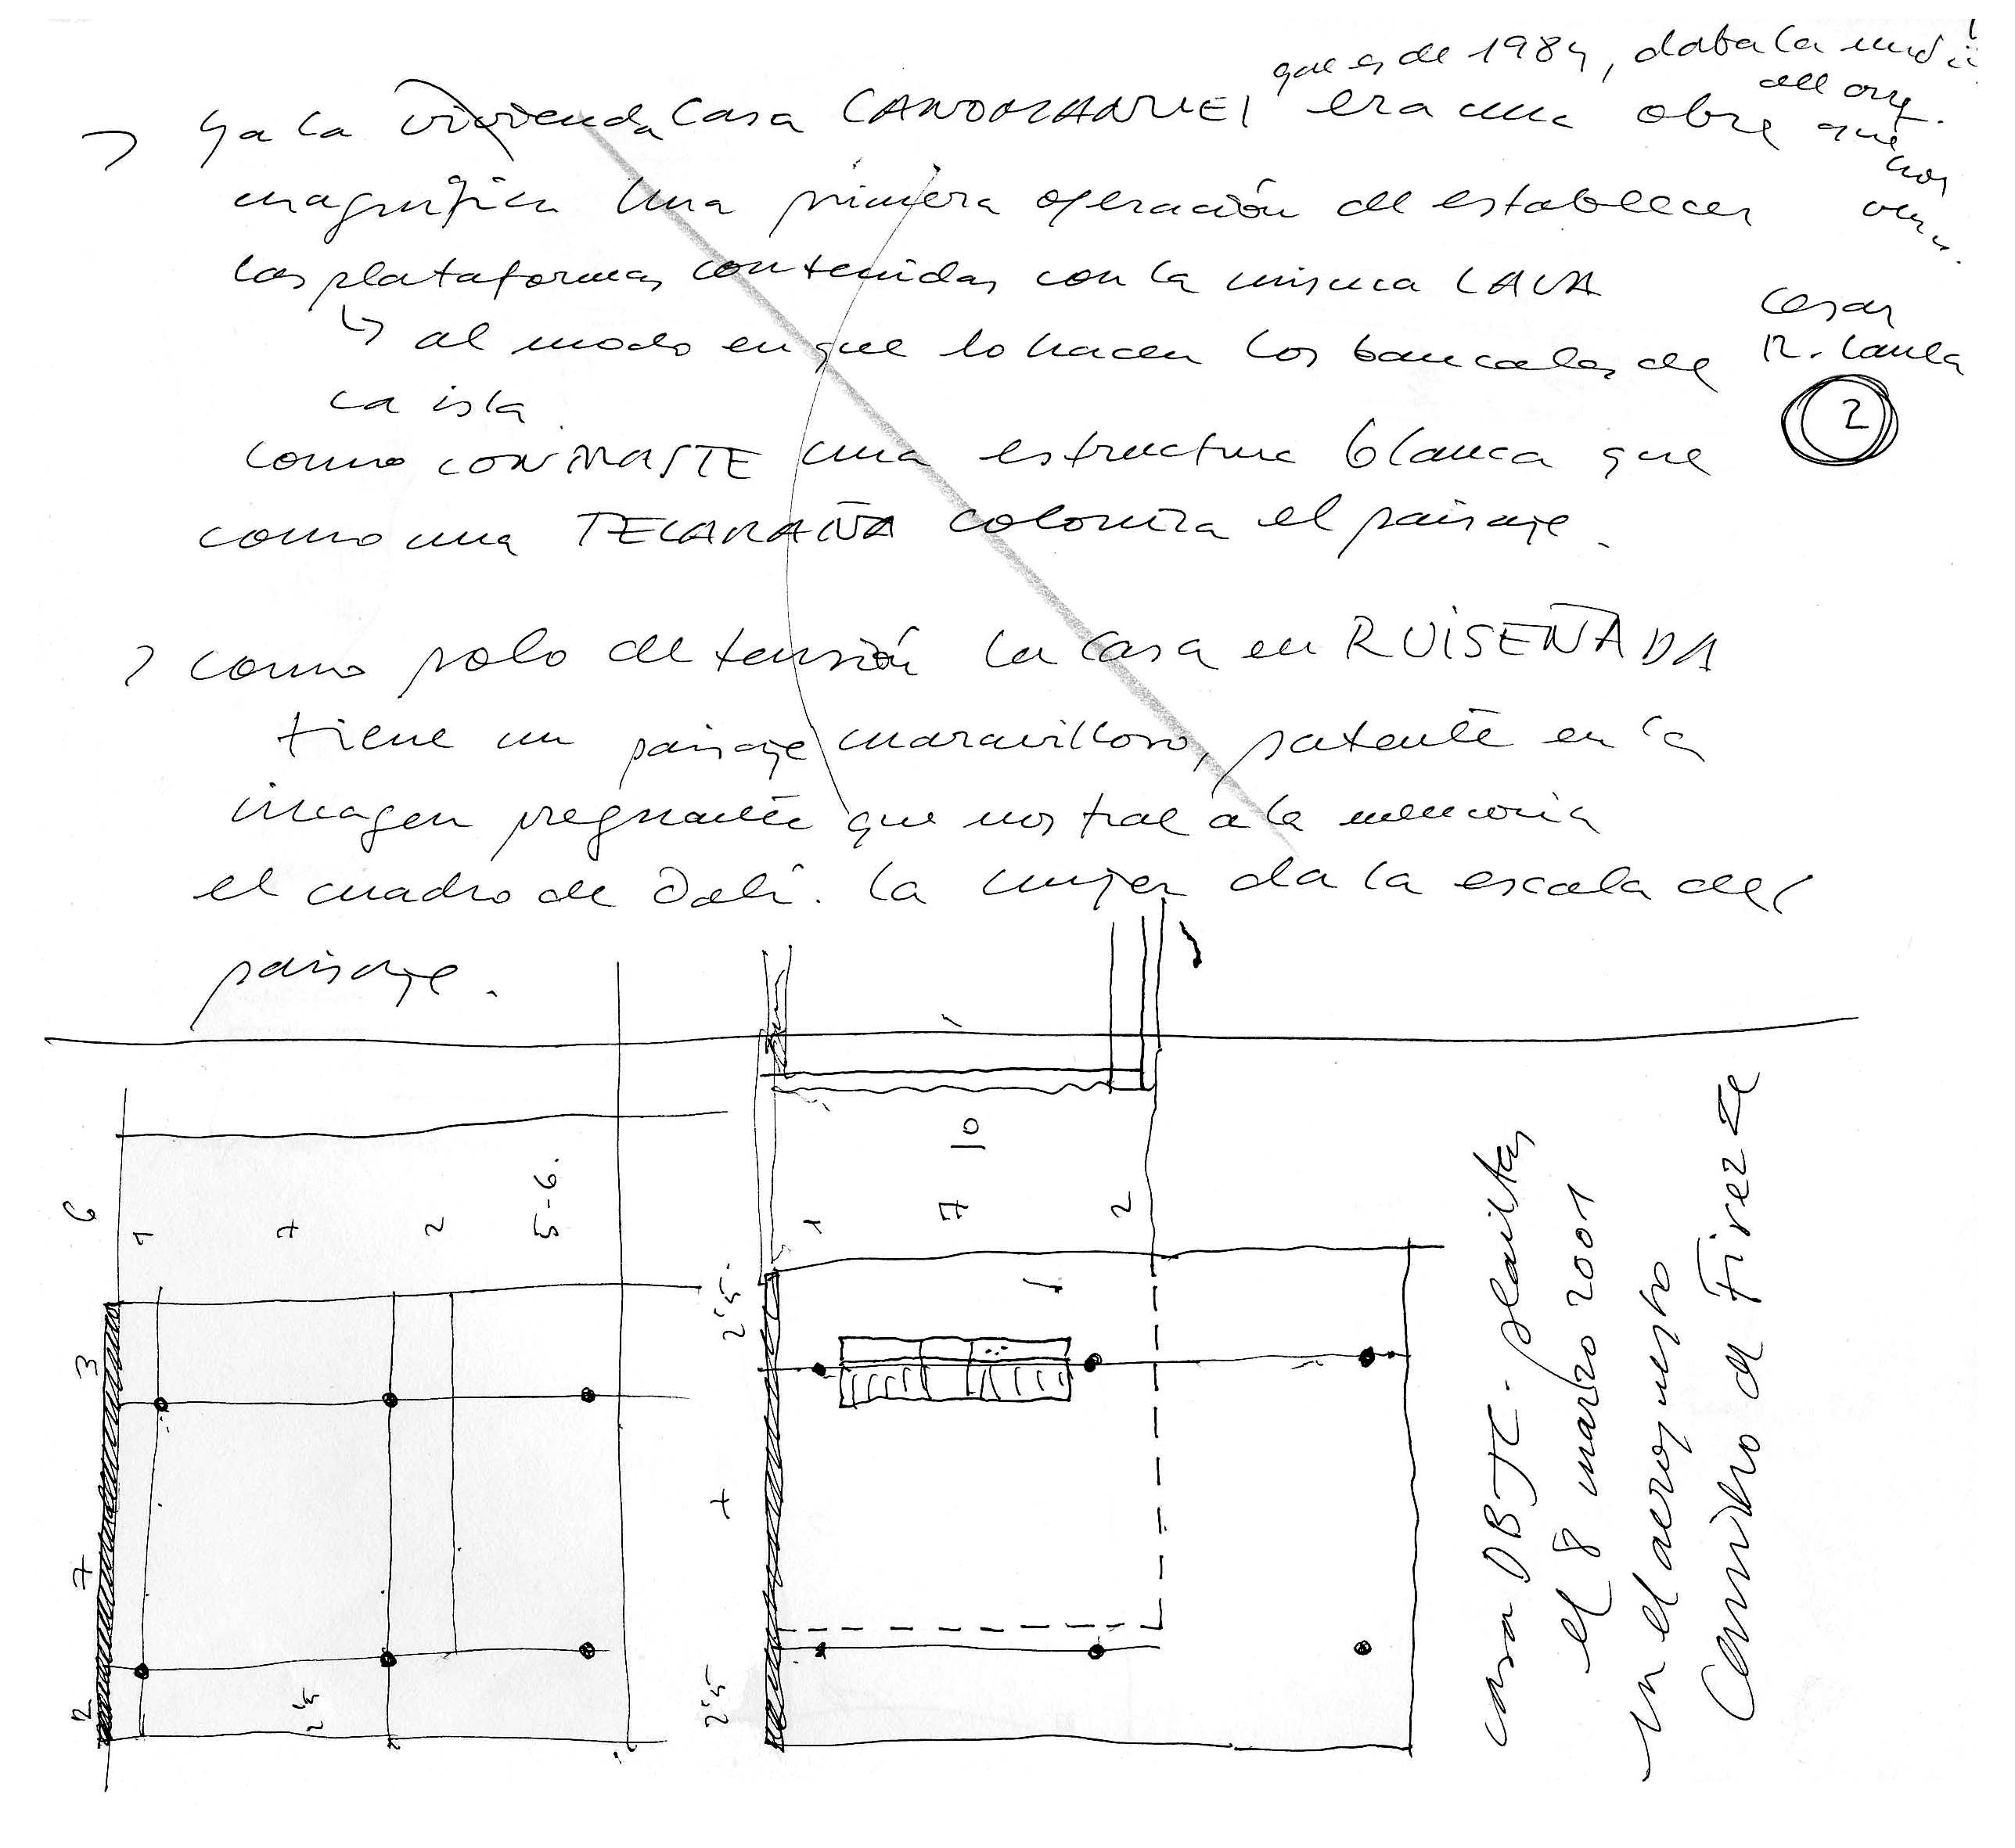 que es de 1984, daba la
del arq.
Ya la vivienda Casa CANOMANUEL era una obra que
nos
magnífica Una primera operación de establecer
las plataformas contenidas con la misma LAVA
Cesar
↳ al modo en que lo hacen los bancales de
la isla.
2
como CONTRASTE una estructura blanca que
como una TELARAÑA coloniza el paisaje.
como polo de tensión la casa en RUISEÑADA
tiene un paisaje maravilloso, patente en la
imagen pregnante que nos trae a la memoria
el cuadro de Dalí. la mujer da la escala del
paisaje.
6
1 7 2 5-6.
3
7
2
2'5
10
1 7 2
2'5
7
2'5
casa DBJC. plantas
el 8 marzo 2001
en el aeropuerto
Camino de Firenze